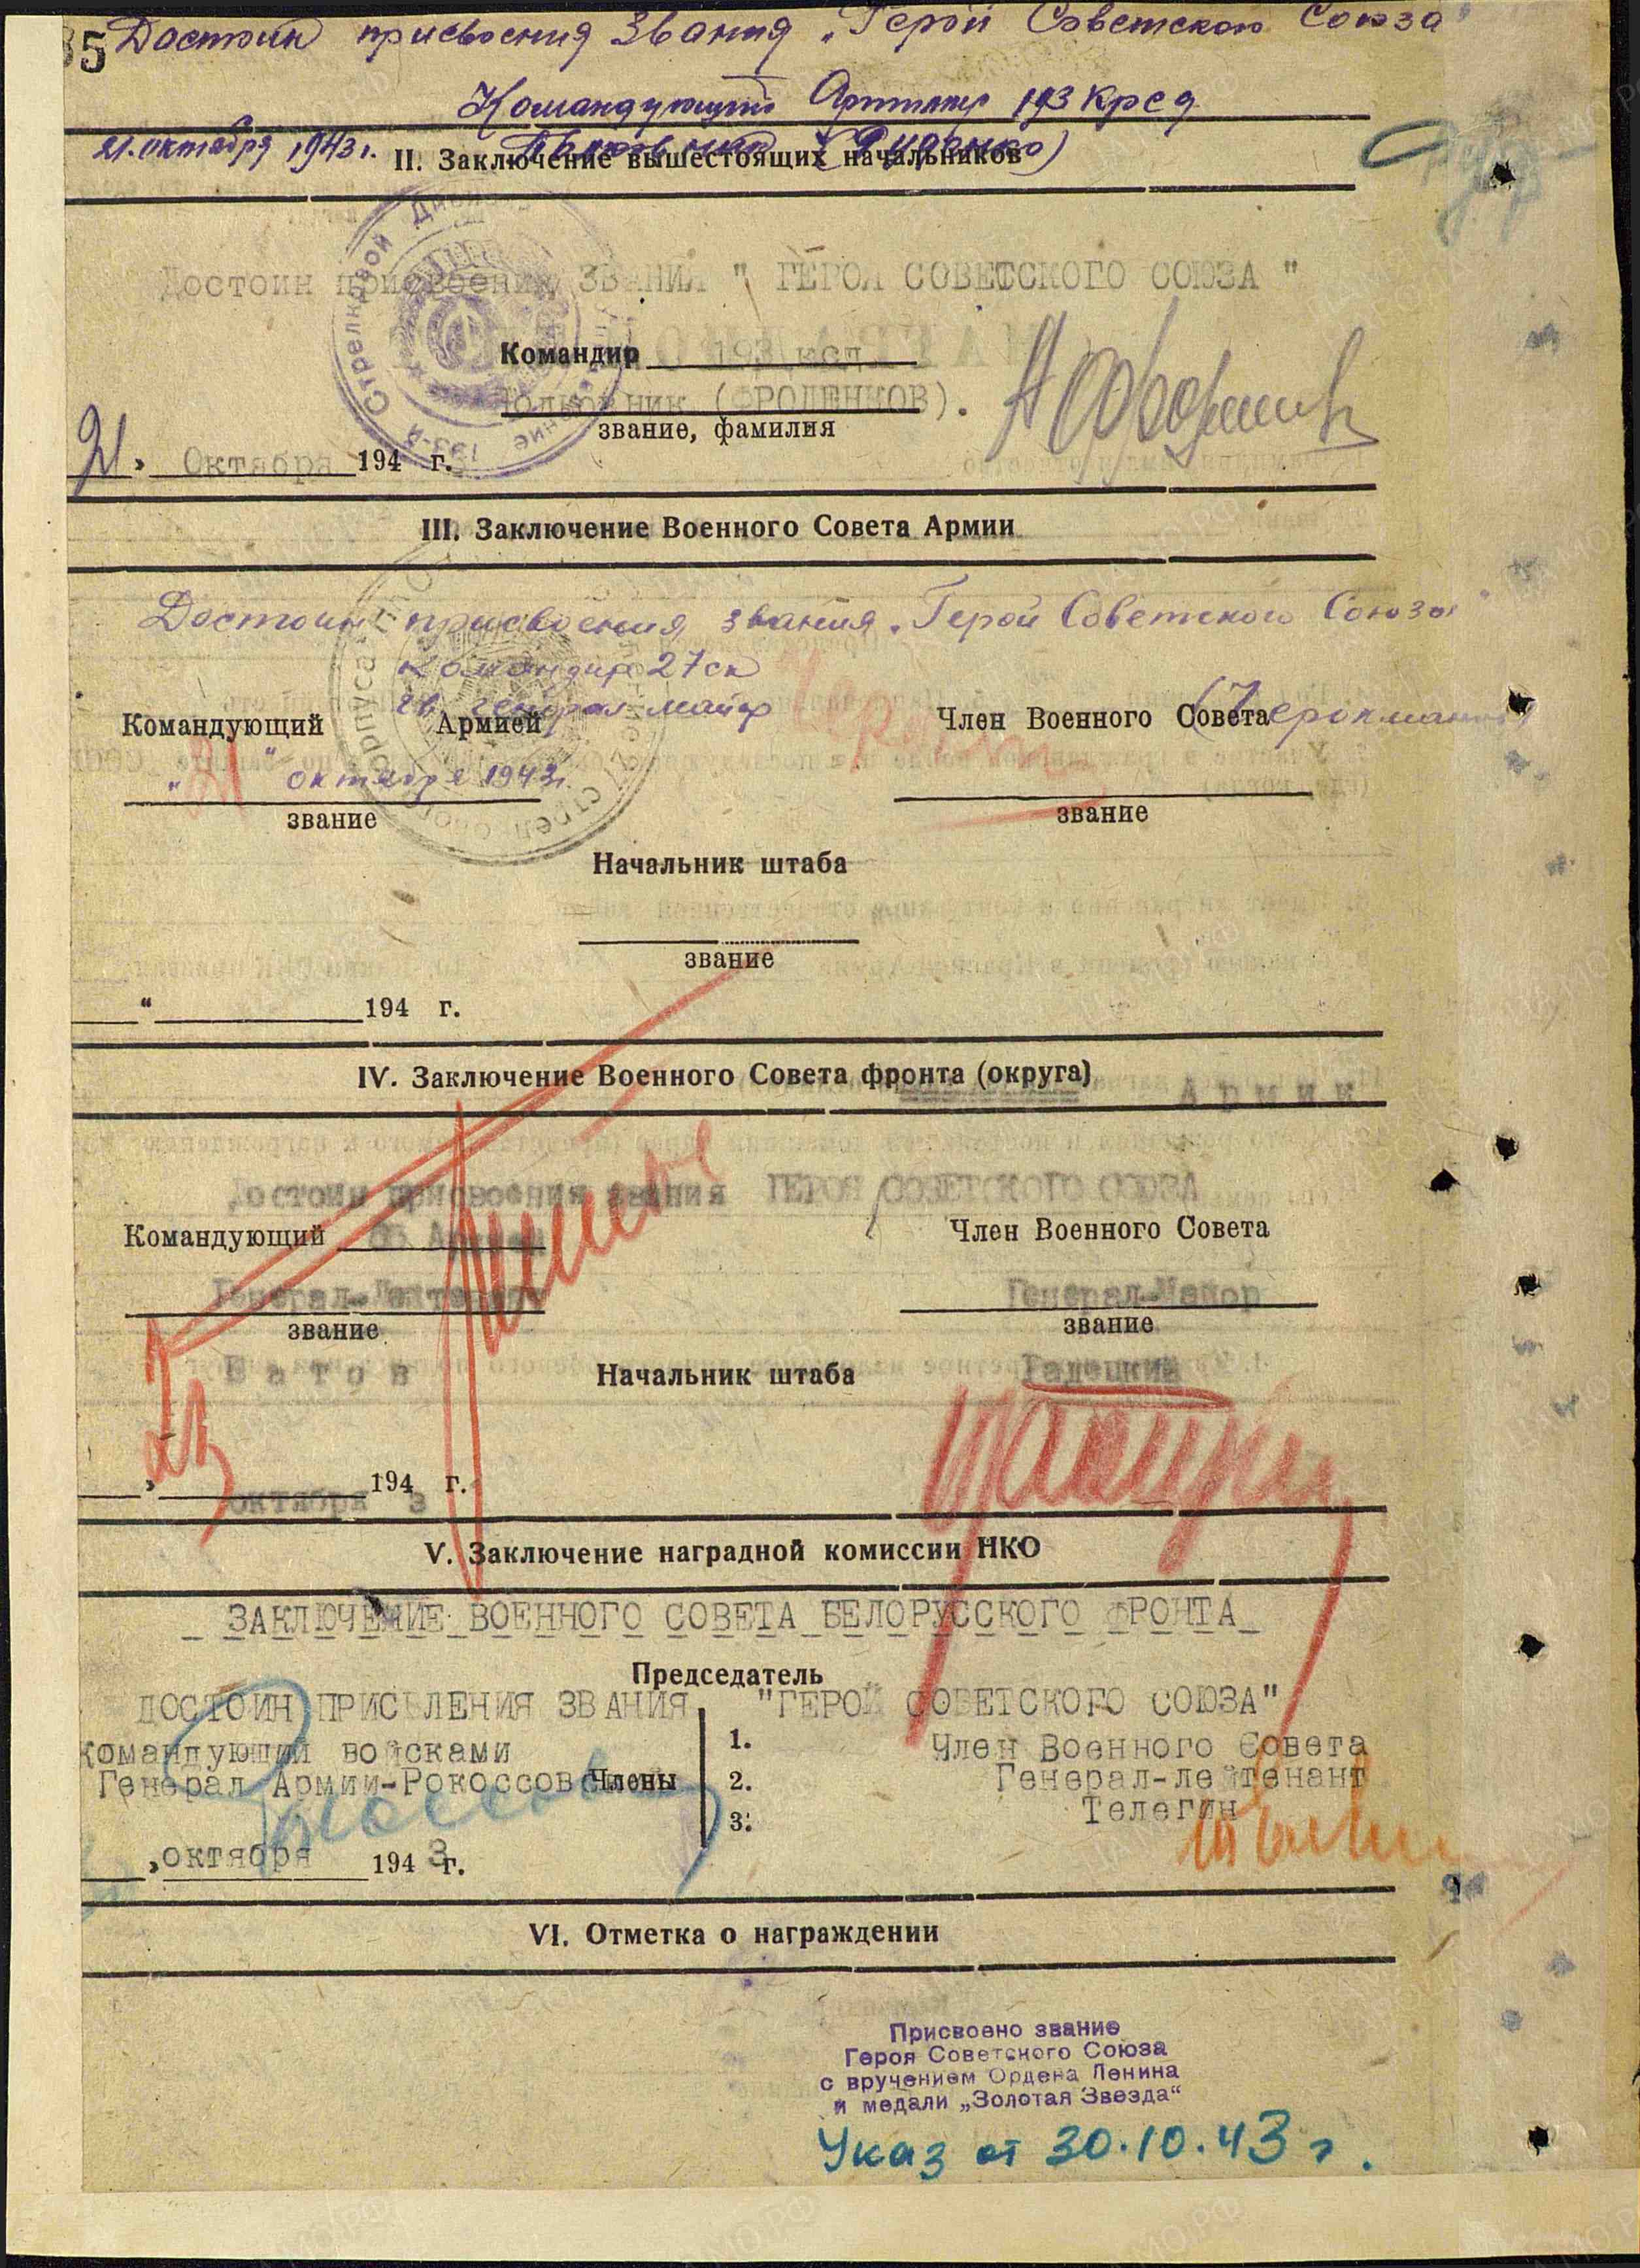 35 Достоин присвоения звания „Герой Советского Союза“
Командующий Артилер 193 Крсд
21. октября 1943 г.
II. Заключение вышестоящих начальников
Достоин присвоения ЗВАНИЯ " ГЕРОЯ СОВЕТСКОГО СОЮЗА "
Командир 193 ксд
Полковник (ФРОЛЕНКОВ).
звание, фамилия
21 " Октября 194 г.
III. Заключение Военного Совета Армии
Достоин присвоения звания „Герой Советского Союза“
Командир 27 ск
гв. генерал-майор
Командующий Армией
Член Военного Совета
" 21 " октября 1943 г.
звание
звание
Начальник штаба
звание
" 194 г.
IV. Заключение Военного Совета фронта (округа)
Армии
Достоин присвоения звания ГЕРОЯ СОВЕТСКОГО СОЮЗА
Командующий 65 Армией
Член Военного Совета
Генерал-Лейтенант
Генерал-Майор
звание
звание
Батов
Начальник штаба
Радецкий
23 " октября 194 3 г.
V. Заключение наградной комиссии НКО
ЗАКЛЮЧЕНИЕ ВОЕННОГО СОВЕТА БЕЛОРУССКОГО ФРОНТА
Председатель
ДОСТОИН ПРИСВЛЕНИЯ ЗВАНИЯ "ГЕРОЙ СОВЕТСКОГО СОЮЗА"
1.
командующий войсками
Член Военного Совета
Генерал Армии-Рокоссовский
Члены
2.
Генерал-лейтенант
3.
Телегин
" октября 194 3 г.
VI. Отметка о награждении
Присвоено звание
Героя Советского Союза
с вручением Ордена Ленина
и медали „Золотая Звезда“
Указ от 30.10.43 г.